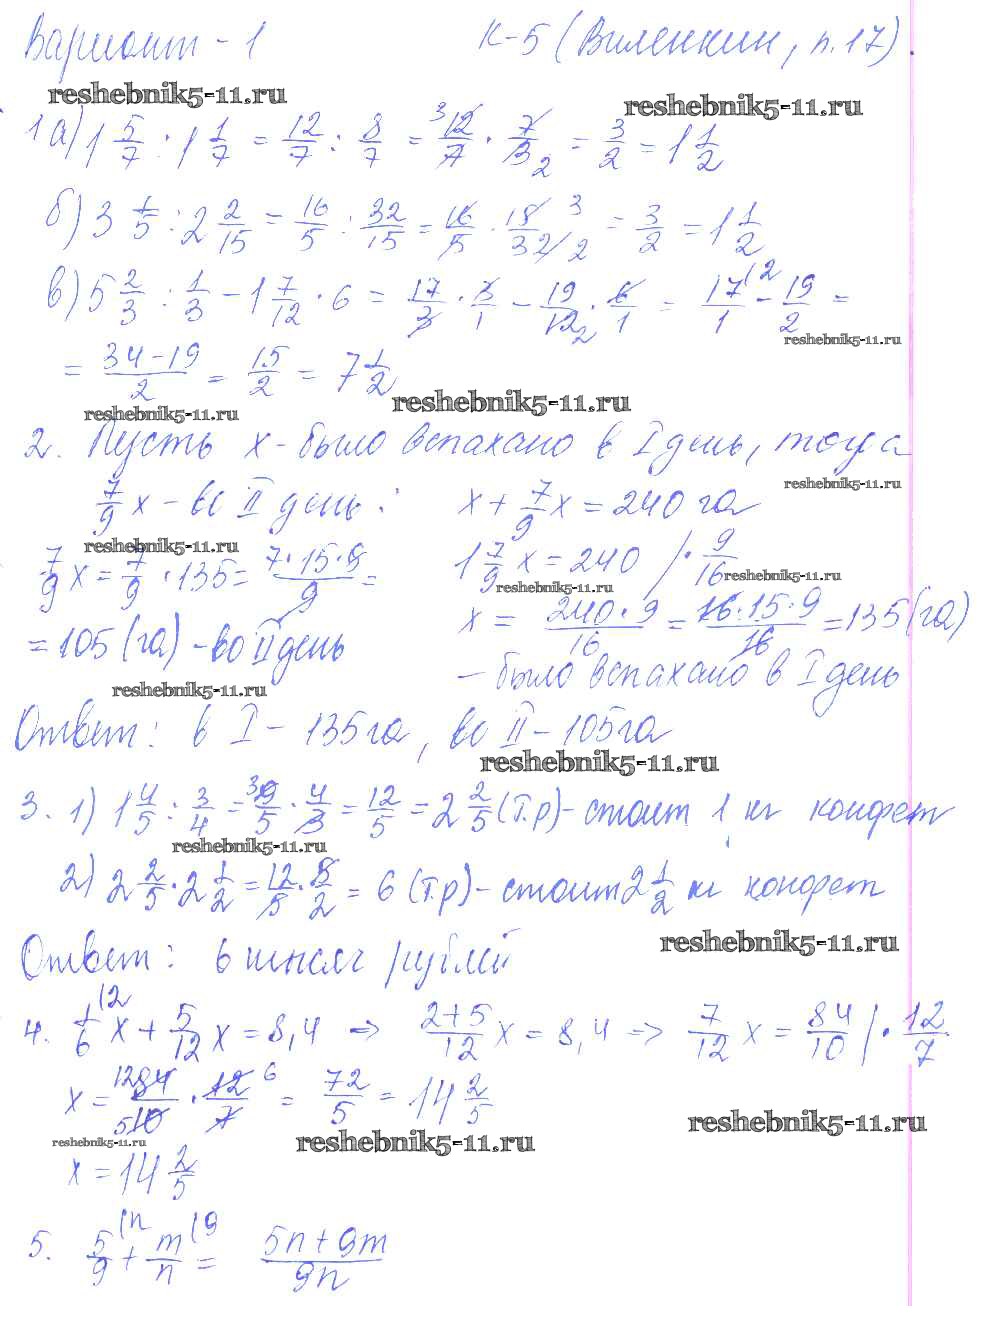 Вариант - 1 К-5 (Виленкин, п.17).
reshebnik5-11.ru reshebnik5-11.ru
1 а) 1 5/7 : 1 1/7 = 12/7 : 8/7 = 12/7 · 7/8 = 3/2 = 1 1/2
б) 3 1/5 : 2 2/15 = 16/5 : 32/15 = 16/5 · 15/32 = 3/2 = 1 1/2
в) 5 2/3 : 1/3 - 1 7/12 · 6 = 17/3 · 3/1 - 19/12 · 6/1 = 17/1 - 19/2 =
reshebnik5-11.ru
= (34-19)/2 = 15/2 = 7 1/2
reshebnik5-11.ru reshebnik5-11.ru
2. Пусть x - было вспахано в I день, тогда
reshebnik5-11.ru
7/9 x - во II день : x + 7/9 x = 240 га
reshebnik5-11.ru
7/9 x = 7/9 · 135 = (7·15·9)/9 = 1 7/9 x = 240 / · 9/16
reshebnik5-11.ru reshebnik5-11.ru
= 105 (га) - во II день x = (240·9)/16 = (16·15·9)/16 = 135 (га)
- было вспахано в I день
reshebnik5-11.ru
Ответ: в I - 135 га, во II - 105 га
reshebnik5-11.ru
3. 1) 1 4/5 : 3/4 = 9/5 · 4/3 = 12/5 = 2 2/5 (т.р) - стоит 1 кг конфет
reshebnik5-11.ru
2) 2 2/5 · 2 1/2 = 12/5 · 5/2 = 6 (т.р) - стоит 2 1/2 кг конфет
reshebnik5-11.ru
Ответ: 6 тысяч рублей
4. 1/6 x + 5/12 x = 8,4 => (2+5)/12 x = 8,4 => 7/12 x = 84/10 | · 12/7
x = 84/10 · 12/7 = 72/5 = 14 2/5
reshebnik5-11.ru reshebnik5-11.ru reshebnik5-11.ru
x = 14 2/5
5. 5/9 + m/n = (5n+9m)/9n